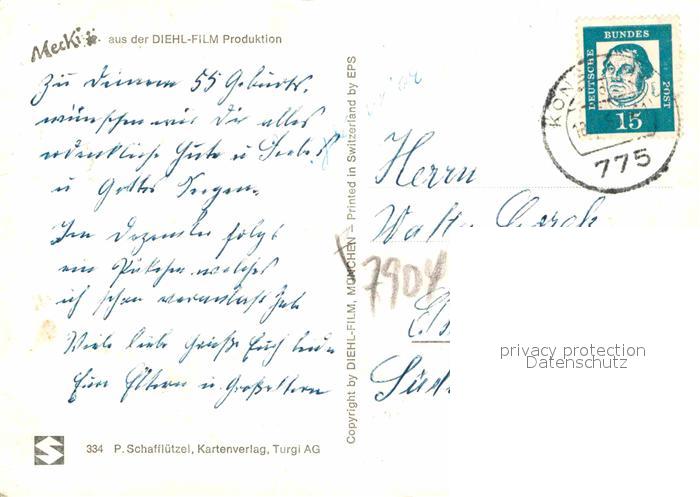 Mecki aus der DIEHL-FILM Produktion
Zu Deinem 55 Geburts.
wünschen wir Dir alles
erdenkliche Gute u Liebe
u Gottes Seegen.
Im Dezember folgt
ein Päkchen welches
ich schon veranlast hab
Viele liebe Grüße Euch beiden
Eure Eltern u. Großeltern
334 P. Schafflützel, Kartenverlag, Turgi AG
Copyright by DIEHL-FILM, MÜNCHEN – Printed in Switzerland by EPS
DEUTSCHE BUNDES POST
15
KON
775
Herrn
Walter
7904
Süd
privacy protection
Datenschutz